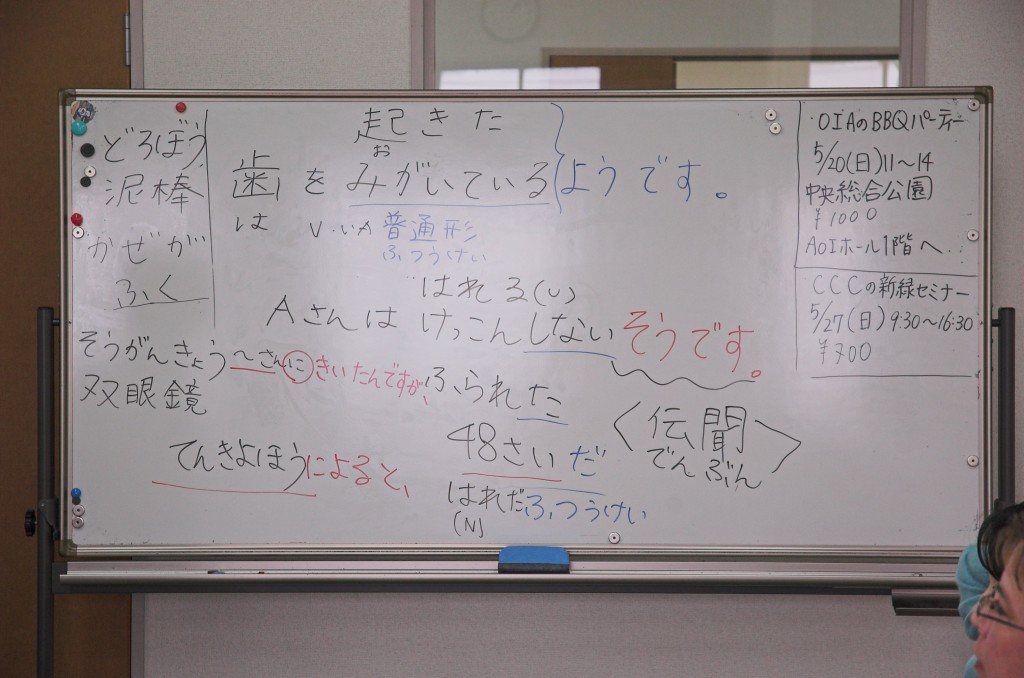 どろぼう
泥棒
かぜが
ふく
そうがんきょう
双眼鏡
起きた
お
歯をみがいているようです。
は
V・いA 普通形
ふつうけい
はれる(V)
AさんはけっこんしないそうですV。
〜さんにきいたんですが、ふられた
48さいだ
てんきよほうによると、
はれだ ふつうけい
(N)
〈伝聞〉
でんぶん
OIAのBBQパーティー
5/20(日)11〜14
中央総合公園
¥1000
AOIホール1階へ
CCCの新緑セミナー
5/27(日)9:30〜16:30
¥700